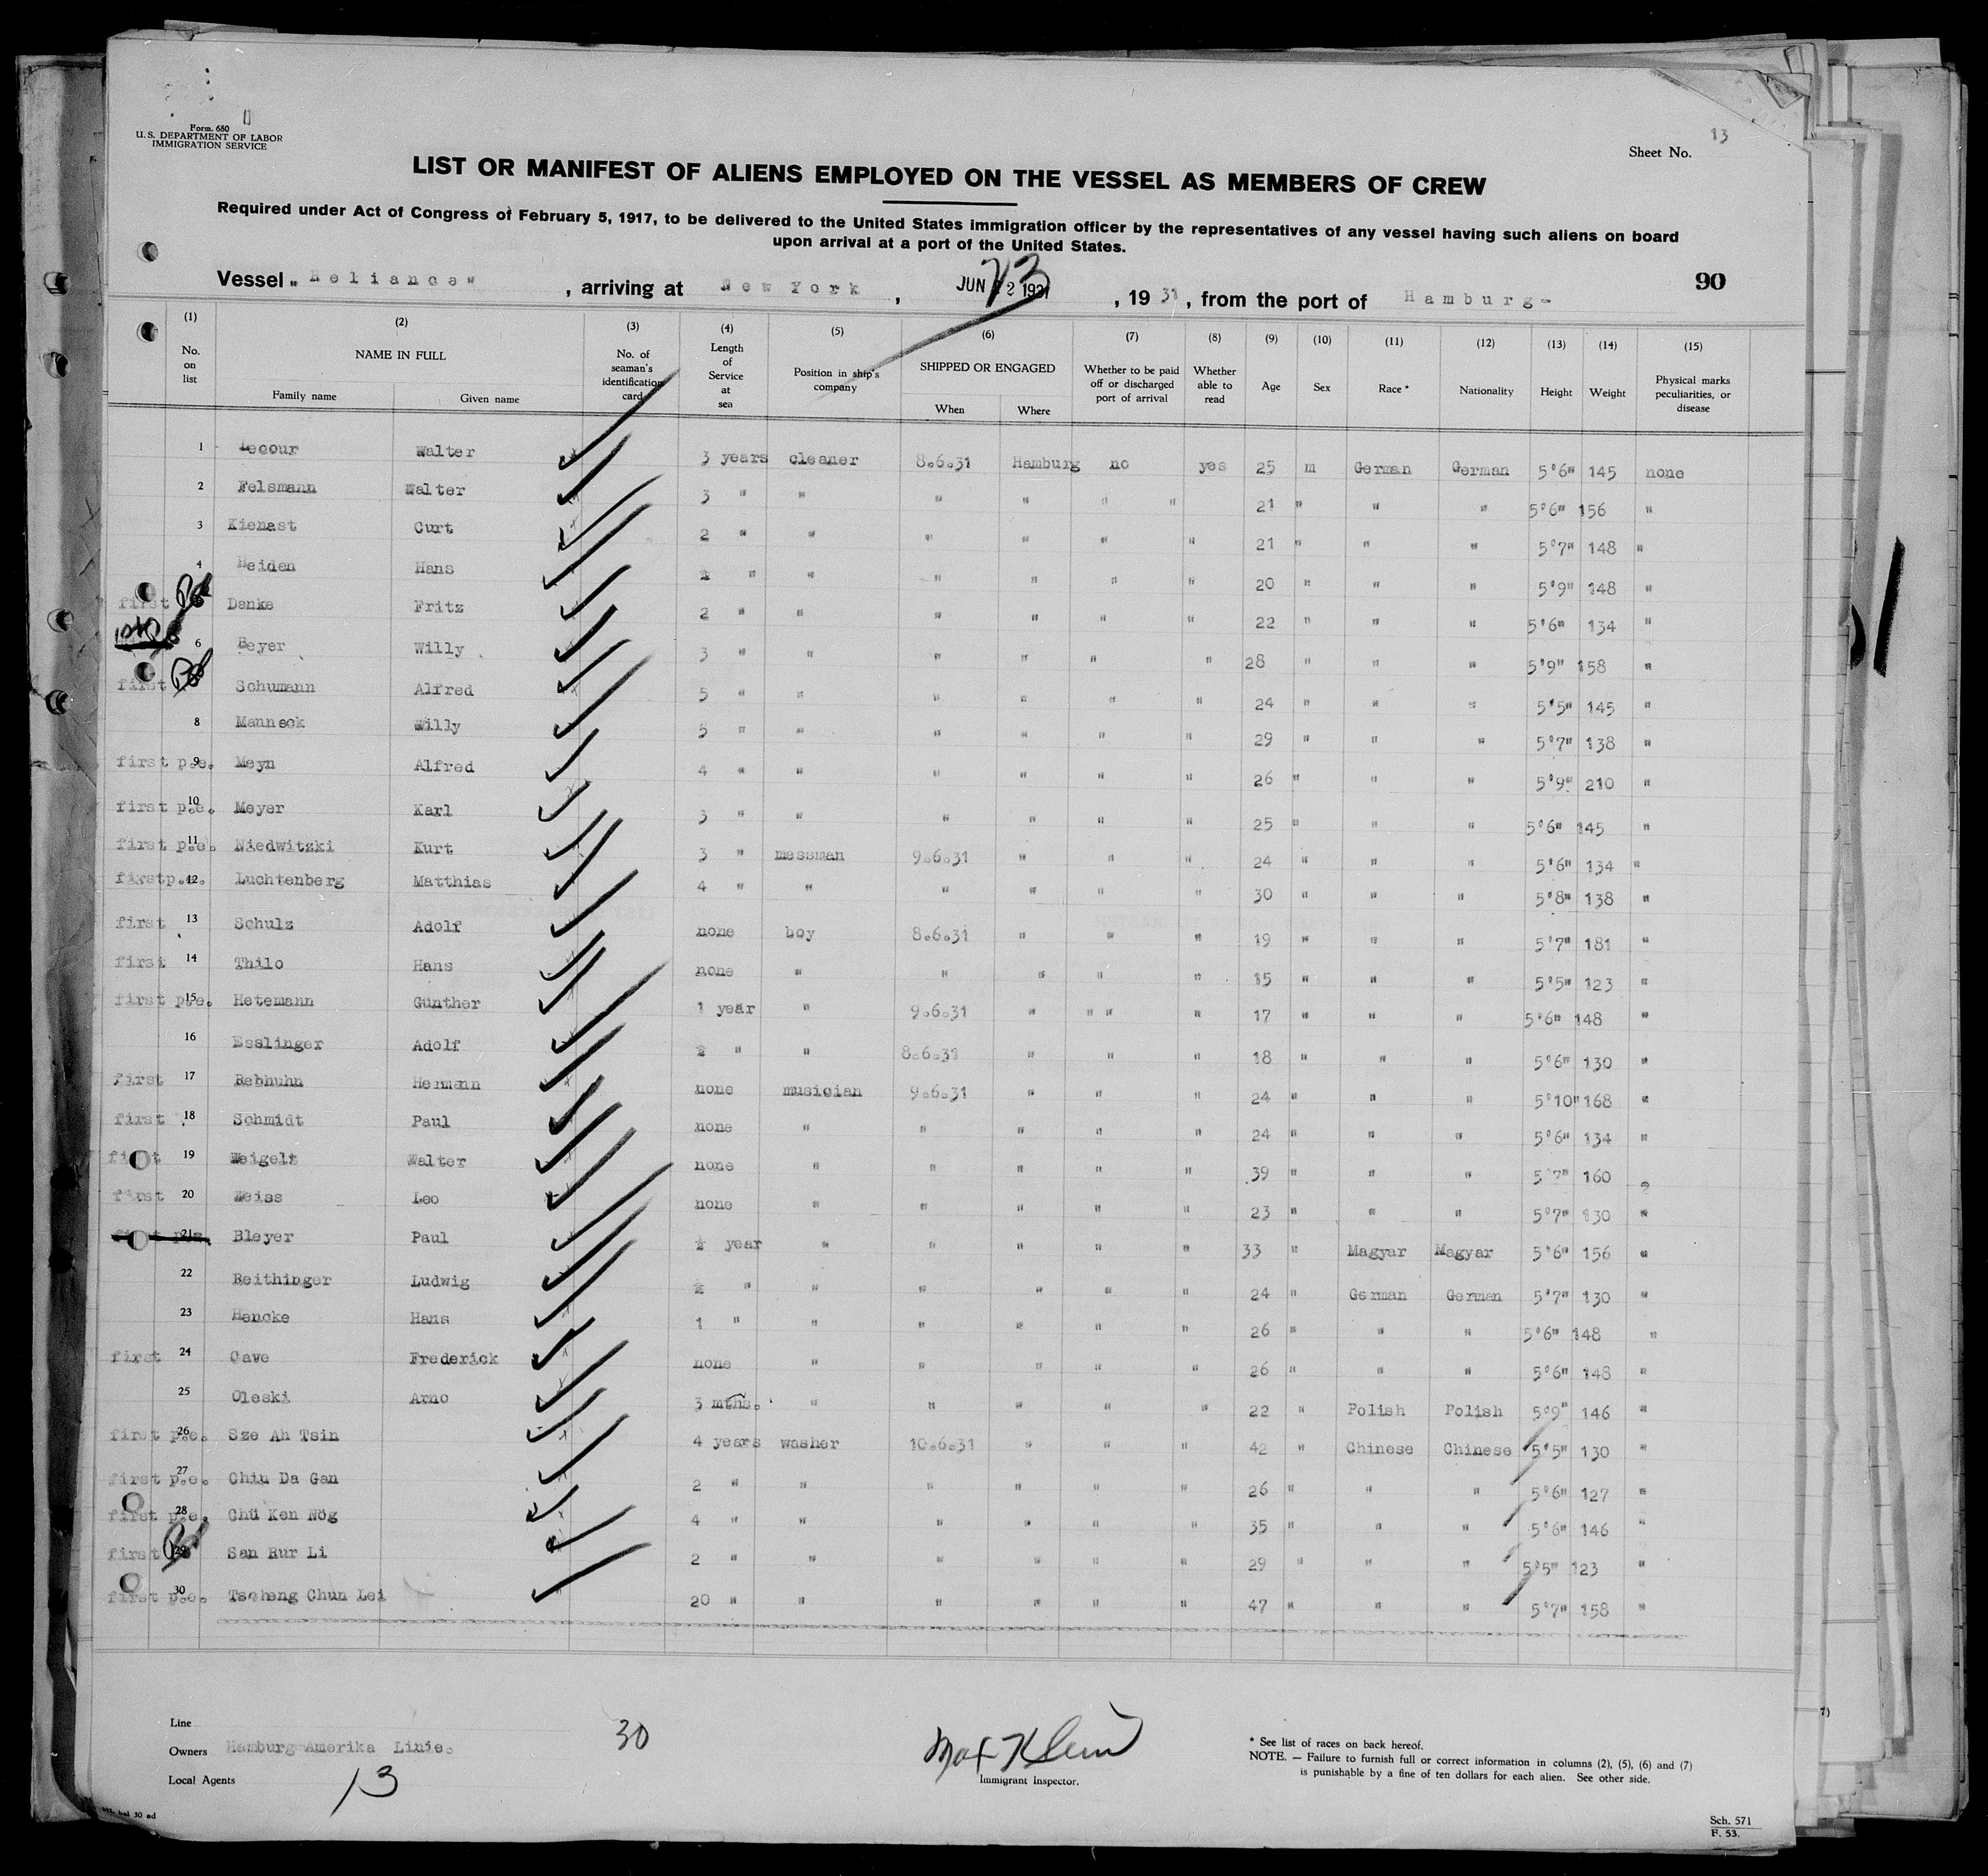 Form. 680
U. S. DEPARTMENT OF LABOR
IMMIGRATION SERVICE
13
Sheet No.
LIST OR MANIFEST OF ALIENS EMPLOYED ON THE VESSEL AS MEMBERS OF CREW
Required under Act of Congress of February 5, 1917, to be delivered to the United States immigration officer by the representatives of any vessel having such aliens on board
upon arrival at a port of the United States.
90
Vessel "Reliance" , arriving at New York , JUN 1931 , 1931 , from the port of Hamburg-
(1) (2) (3) (4) (5) (6) (7) (8) (9) (10) (11) (12) (13) (14) (15)
No. on list NAME IN FULL Family name Given name No. of seaman's identification card Length of Service at sea Position in ship's company SHIPPED OR ENGAGED When Where Whether to be paid off or discharged port of arrival Whether able to read Age Sex Race * Nationality Height Weight Physical marks peculiarities, or disease
1 Lecour Walter 3 years cleaner 8.6.31 Hamburg no yes 25 m German German 5'6" 145 none
2 Felsmann Walter 3 " " " " " " 21 " " " 5'6" 156 "
3 Kienast Curt 2 " " " " " " 21 " " " 5'7" 148 "
4 Heiden Hans " " " " " " 20 " " " 5'9" 148 "
first Danke Fritz 2 " " " " " " 22 " " " 5'6" 134 "
6 Beyer Willy 3 " " " " " " 28 " " " 5'9" 158 "
first Schumann Alfred 5 " " " " " " 24 " " " 5'5" 145 "
8 Manneck Willy 5 " " " " " " 29 " " " 5'7" 138 "
first p.e. 9 Meyn Alfred 4 " " " " " " 26 " " " 5'9" 210 "
first p.e. 10 Meyer Karl 3 " " " " " " 25 " " " 5'6" 145 "
first p.e. 11 Niedwitzki Kurt 3 " messman 9.6.31 " " " 24 " " " 5'6" 134 "
first p.e. 12 Luchtenberg Matthias 4 " " " " " " 30 " " " 5'8" 138 "
first 13 Schulz Adolf none boy 8.6.31 " " " 19 " " " 5'7" 181 "
first 14 Thilo Hans none " " " " " 15 " " " 5'5" 123 "
first p.e. 15 Hetemann Günther 1 year " 9.6.31 " " " " 17 " " " 5'6" 148 "
16 Esslinger Adolf ½ " " 8.6.31 " " " 18 " " " 5'6" 130 "
first 17 Rebhuhn Hermann none musician 9.6.31 " " " 24 " " " 5'10" 168 "
first 18 Schmidt Paul none " " " " " 24 " " " 5'6" 134 "
first 19 Weigelt Walter none " " " " " 39 " " " 5'7" 160
first 20 Weiss Leo none " " " " " 23 " " " 5'7" 130 "
21 Bleyer Paul ½ year " " " " " 33 " Magyar Magyar 5'6" 156 "
22 Reithinger Ludwig ½ " " " " " " 24 " German German 5'7" 130 "
23 Hencke Hans 1 " " " " " " 26 " " " 5'6" 148 "
first 24 Cave Frederick none " " " " " 26 " " " 5'6" 148 "
25 Oleski Arno 3 mths. " " " " " 22 " Polish Polish 5'9" 146 "
first p.e. 26 Sze Ah Tsin 4 years washer 10.6.31 " " " 42 " Chinese Chinese 5'5" 130 "
first p.e. 27 Chiu Da Gan 2 " " " " " " 26 " " " 5'6" 127 "
first p.e. 28 Chü Ken Nög 4 " " " " " " 35 " " " 5'6" 146 "
first 29 San Rur Li 2 " " " " " " 29 " " " 5'5" 123 "
first p.e. 30 Tscheng Chun Lei 20 " " " " " " 47 " " " 5'7" 158 "
Line
30
Owners Hamburg-Amerika Linie.
Local Agents 13
Max Klein
Immigrant Inspector.
* See list of races on back hereof.
NOTE. — Failure to furnish full or correct information in columns (2), (5), (6) and (7)
is punishable by a fine of ten dollars for each alien. See other side.
Sch. 571
F. 53.